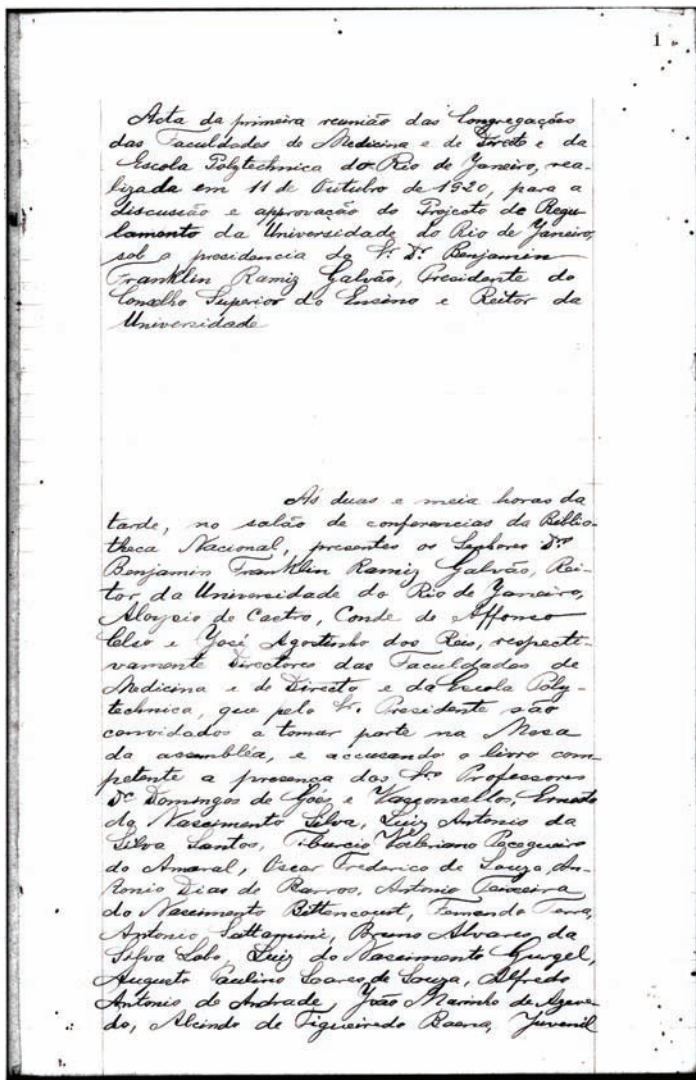 1
Acta da primeira reunião das Congregações
das Faculdades de Medicina e de Direito e da
Escola Polytechnica do Rio de Janeiro, rea-
lizada em 11 de Outubro de 1920, para a
discussão e approvação do Projecto de Regu-
lamento da Universidade do Rio de Janeiro,
sob a presidencia do Sr. Dr. Benjamin
Franklin Ramiz Galvão, Presidente do
Conselho Superior do Ensino e Reitor da
Universidade
Ás duas e meia horas da
tarde, no salão de conferencias da Biblio-
theca Nacional, presentes os Senhores Drs
Benjamin Franklin Ramiz Galvão, Rei-
tor da Universidade do Rio de Janeiro,
Aloysio de Castro, Conde de Affonso
Celso e José Agostinho dos Reis, respecti-
vamente Directores das Faculdades de
Medicina e de Directo e da Escola Poly-
technica, que pelo Sr. Presidente são
convidados a tomar parte na Mesa
da assembléa, e accusando o livro com-
petente a presença dos Srs Professores
Drs Domingos de Góes e Vasconcellos, Ernesto
do Nascimento Silva, Luiz Antonio da
Silva Santos, Tiburcio Valeriano Pecegueiro
do Amaral, Oscar Frederico de Souza, An-
tonio Dias de Barros, Antonio Teixeira
do Nascimento Bittencourt, Fernando Terra,
Antonio Sattamini, Bruno Alvares da
Silva Lobo, Luiz do Nascimento Gurgel,
Augusto Paulino Soares de Souza, Alfredo
Antonio de Andrade, João Marinho de Azeve-
do, Alcindo de Figueiredo Baena, Juvenil